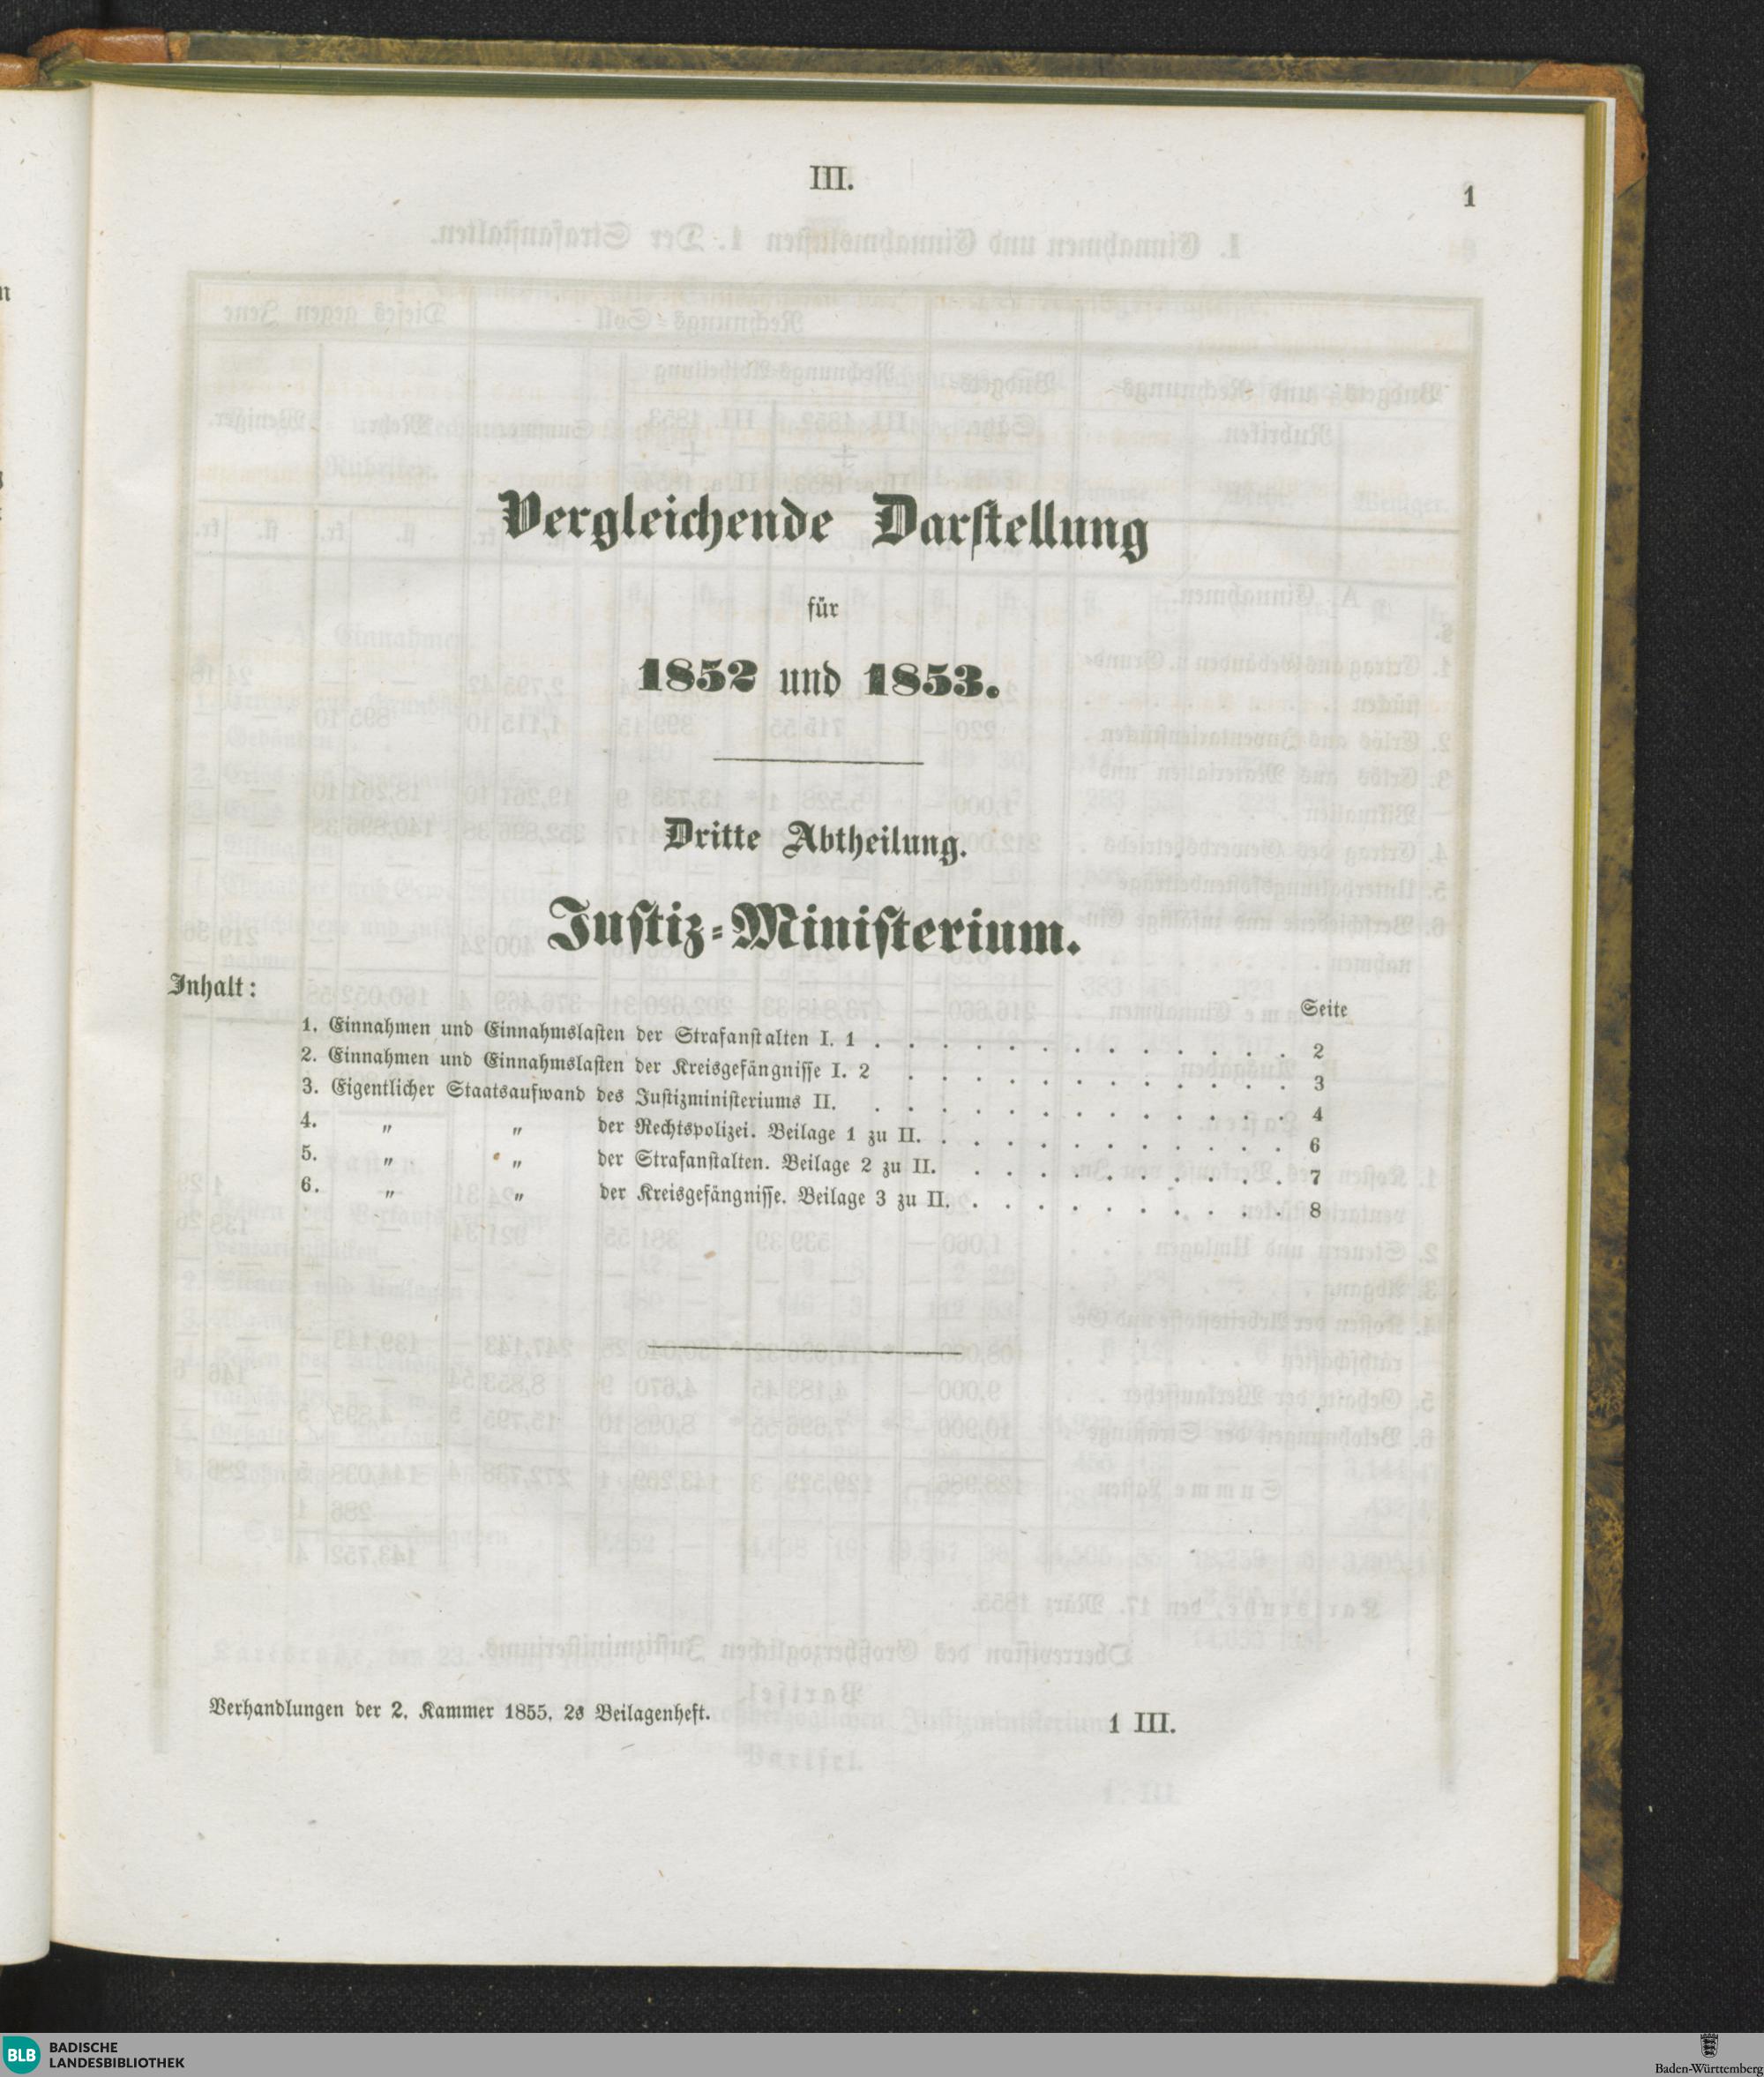 III.
1
Vergleichende Darstellung
für
1852 und 1853.
Dritte Abtheilung.
Justiz-Ministerium.
Inhalt:
Seite
1. Einnahmen und Einnahmslasten der Strafanstalten I. 1 . . . . . . . . . . . . . 2
2. Einnahmen und Einnahmslasten der Kreisgefängnisse I. 2 . . . . . . . . . . . . 3
3. Eigentlicher Staatsaufwand des Justizministeriums II. . . . . . . . . . . . . . 4
4. „ „ der Rechtspolizei. Beilage 1 zu II. . . . . . . . . . . . 6
5. „ „ der Strafanstalten. Beilage 2 zu II. . . . . . . . . . . 7
6. „ „ der Kreisgefängnisse. Beilage 3 zu II. . . . . . . . . . . 8
Verhandlungen der 2. Kammer 1855. 2s Beilagenheft.
1 III.
BLB BADISCHE
LANDESBIBLIOTHEK
Baden-Württemberg